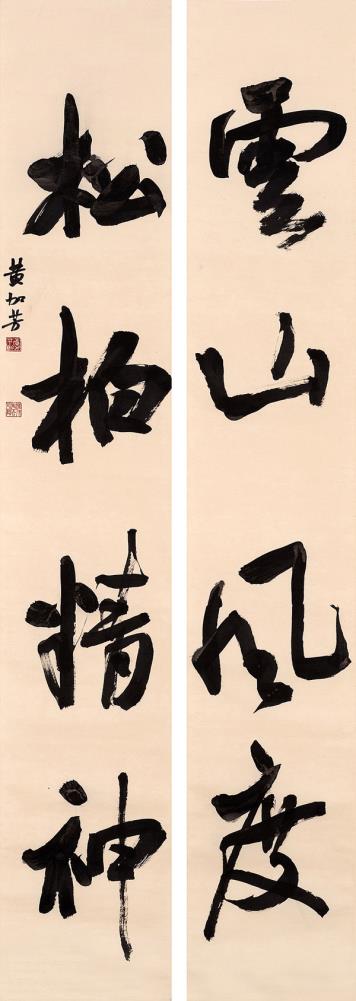 雲山风度
松柏精神
黄加芳